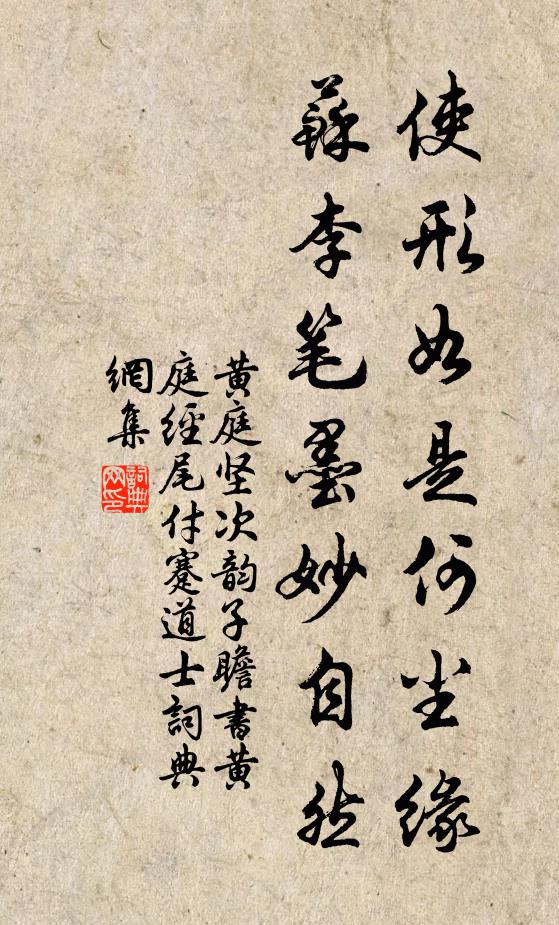 使形如是何尘缘
蘇李笔墨妙自然
黄庭坚次韵子瞻書黄
庭經尾付蹇道士詞典
網集
詞典
网印